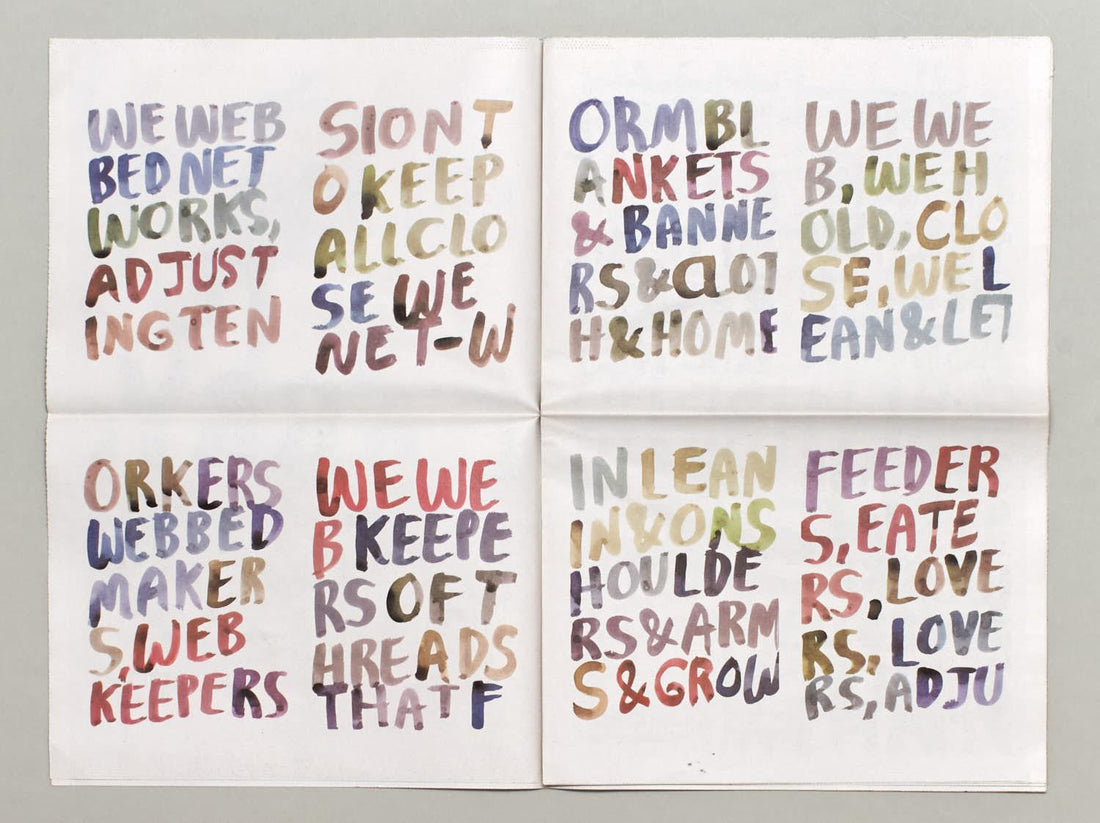 WE WEB
BED NET
WORKS,
ADJUST
ING TEN
SION T
O KEEP
ALL CLO
SE WE
NET-W
ORKERS
WEBBED
MAKER
S, WEB
KEEPERS
WE WE
B KEEPE
RS OF T
HREADS
THAT F
ORM BL
ANKETS
& BANNE
RS & CLOT
H & HOME
WE WE
B, WE H
OLD, CLO
SE, WE L
EAN & LET
IN LEAN
IN & ON S
HOULDE
RS & ARM
S & GROW
FEEDER
S, EATE
RS, LOVE
RS, LOVE
RS, ADJU